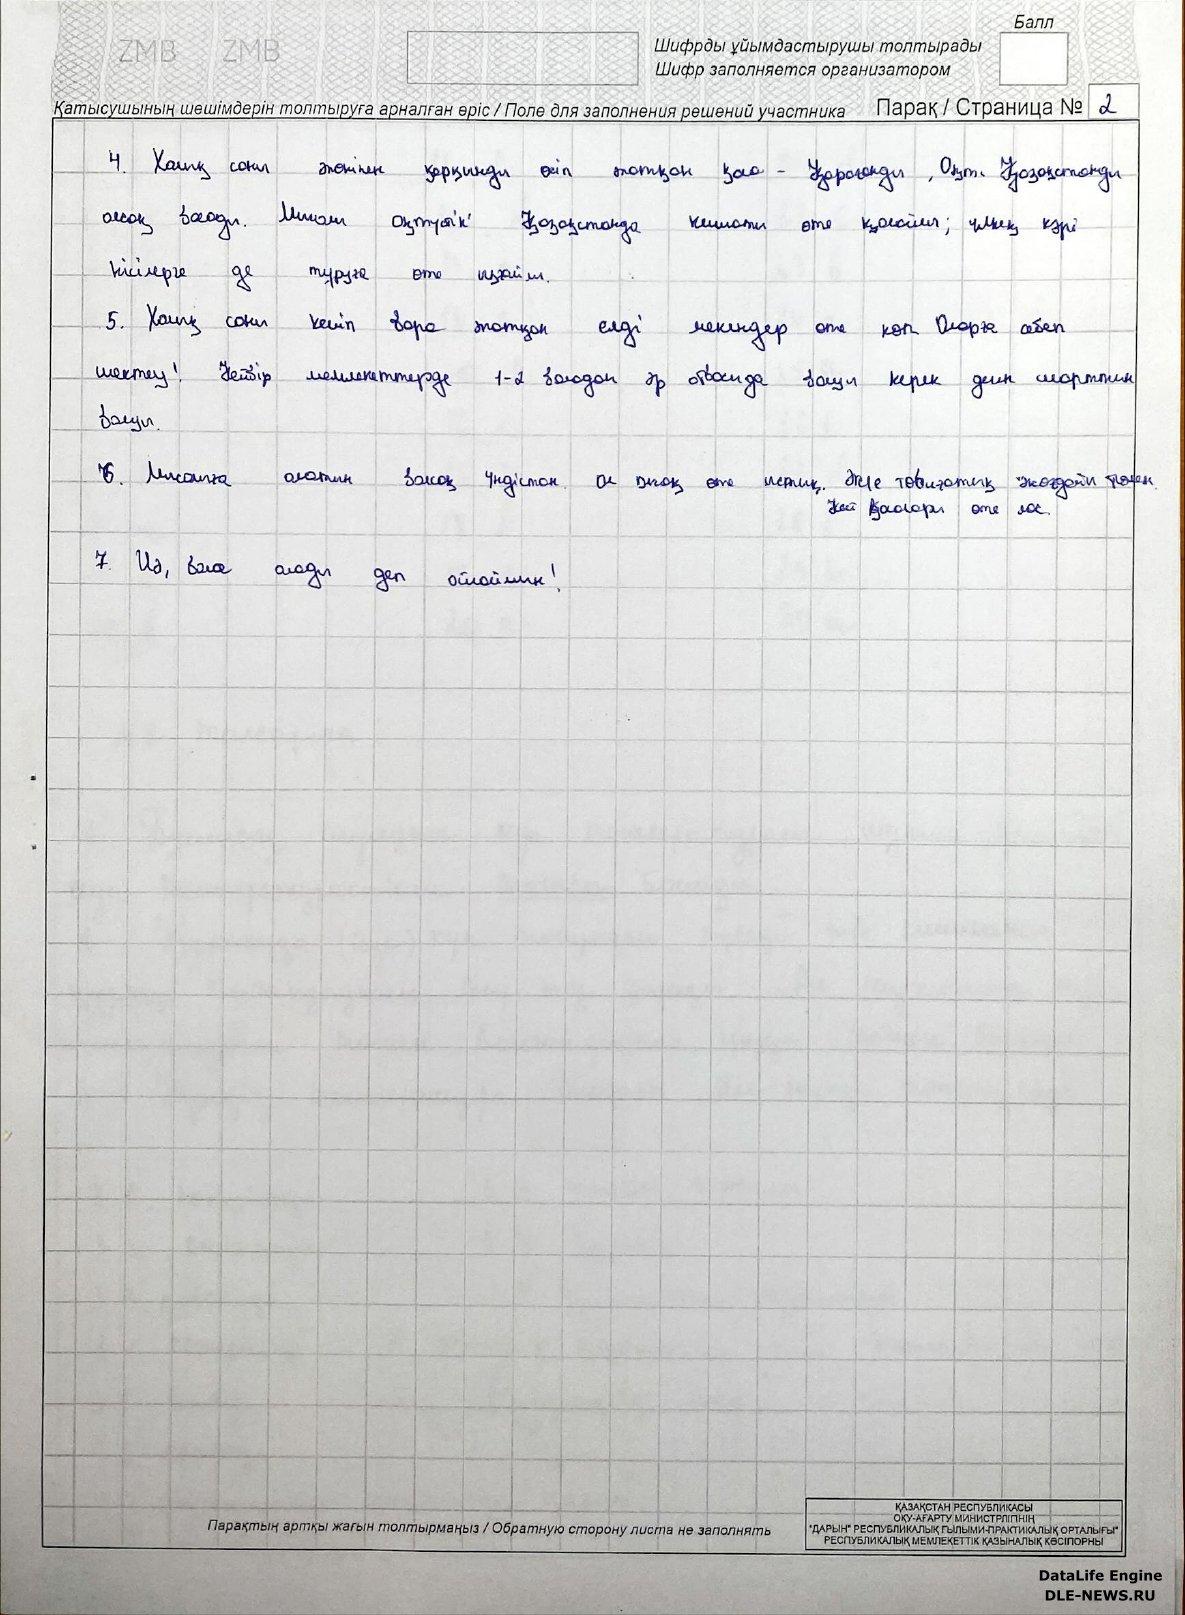 ZMB ZMB
Балл
Шифрды ұйымдастырушы толтырады
Шифр заполняется организатором
Қатысушының шешімдерін толтыруға арналған өріс / Поле для заполнения решений участника Парақ / Страница № 2
4. Халық саны жөнінен қарқынды өсіп жатқан қала - Қарағанды, Оңт. Қазақстанды
алсақ болады. Мысалы оңтүстік Қазақстанда климаты өте қолайлы; кәрі
кісілерге де тұруға өте ыңғайлы.
5. Халық саны кеміп бара жатқан елді мекендер өте көп. Оларға себеп
шектеу! Кейбір мемлекеттерде 1-2 баладан әр отбасыда болуы керек деген шарттың
болуы.
6. Мысалға алатын болсақ Үндістан. Ол жақ өте ыстық. Және табиғатың жағдайы төмен.
Кей қалалары өте лас.
7. Иә, бола алады деп ойлаймын!
Парақтың артқы жағын толтырмаңыз / Обратную сторону листа не заполнять
ҚАЗАҚСТАН РЕСПУБЛИКАСЫ
ОҚУ-АҒАРТУ МИНИСТРЛІГІНІҢ
"ДАРЫН" РЕСПУБЛИКАЛЫҚ ҒЫЛЫМИ-ПРАКТИКАЛЫҚ ОРТАЛЫҒЫ"
РЕСПУБЛИКАЛЫҚ МЕМЛЕКЕТТІК ҚАЗЫНАЛЫҚ КӘСІПОРНЫ
DataLife Engine
DLE-NEWS.RU